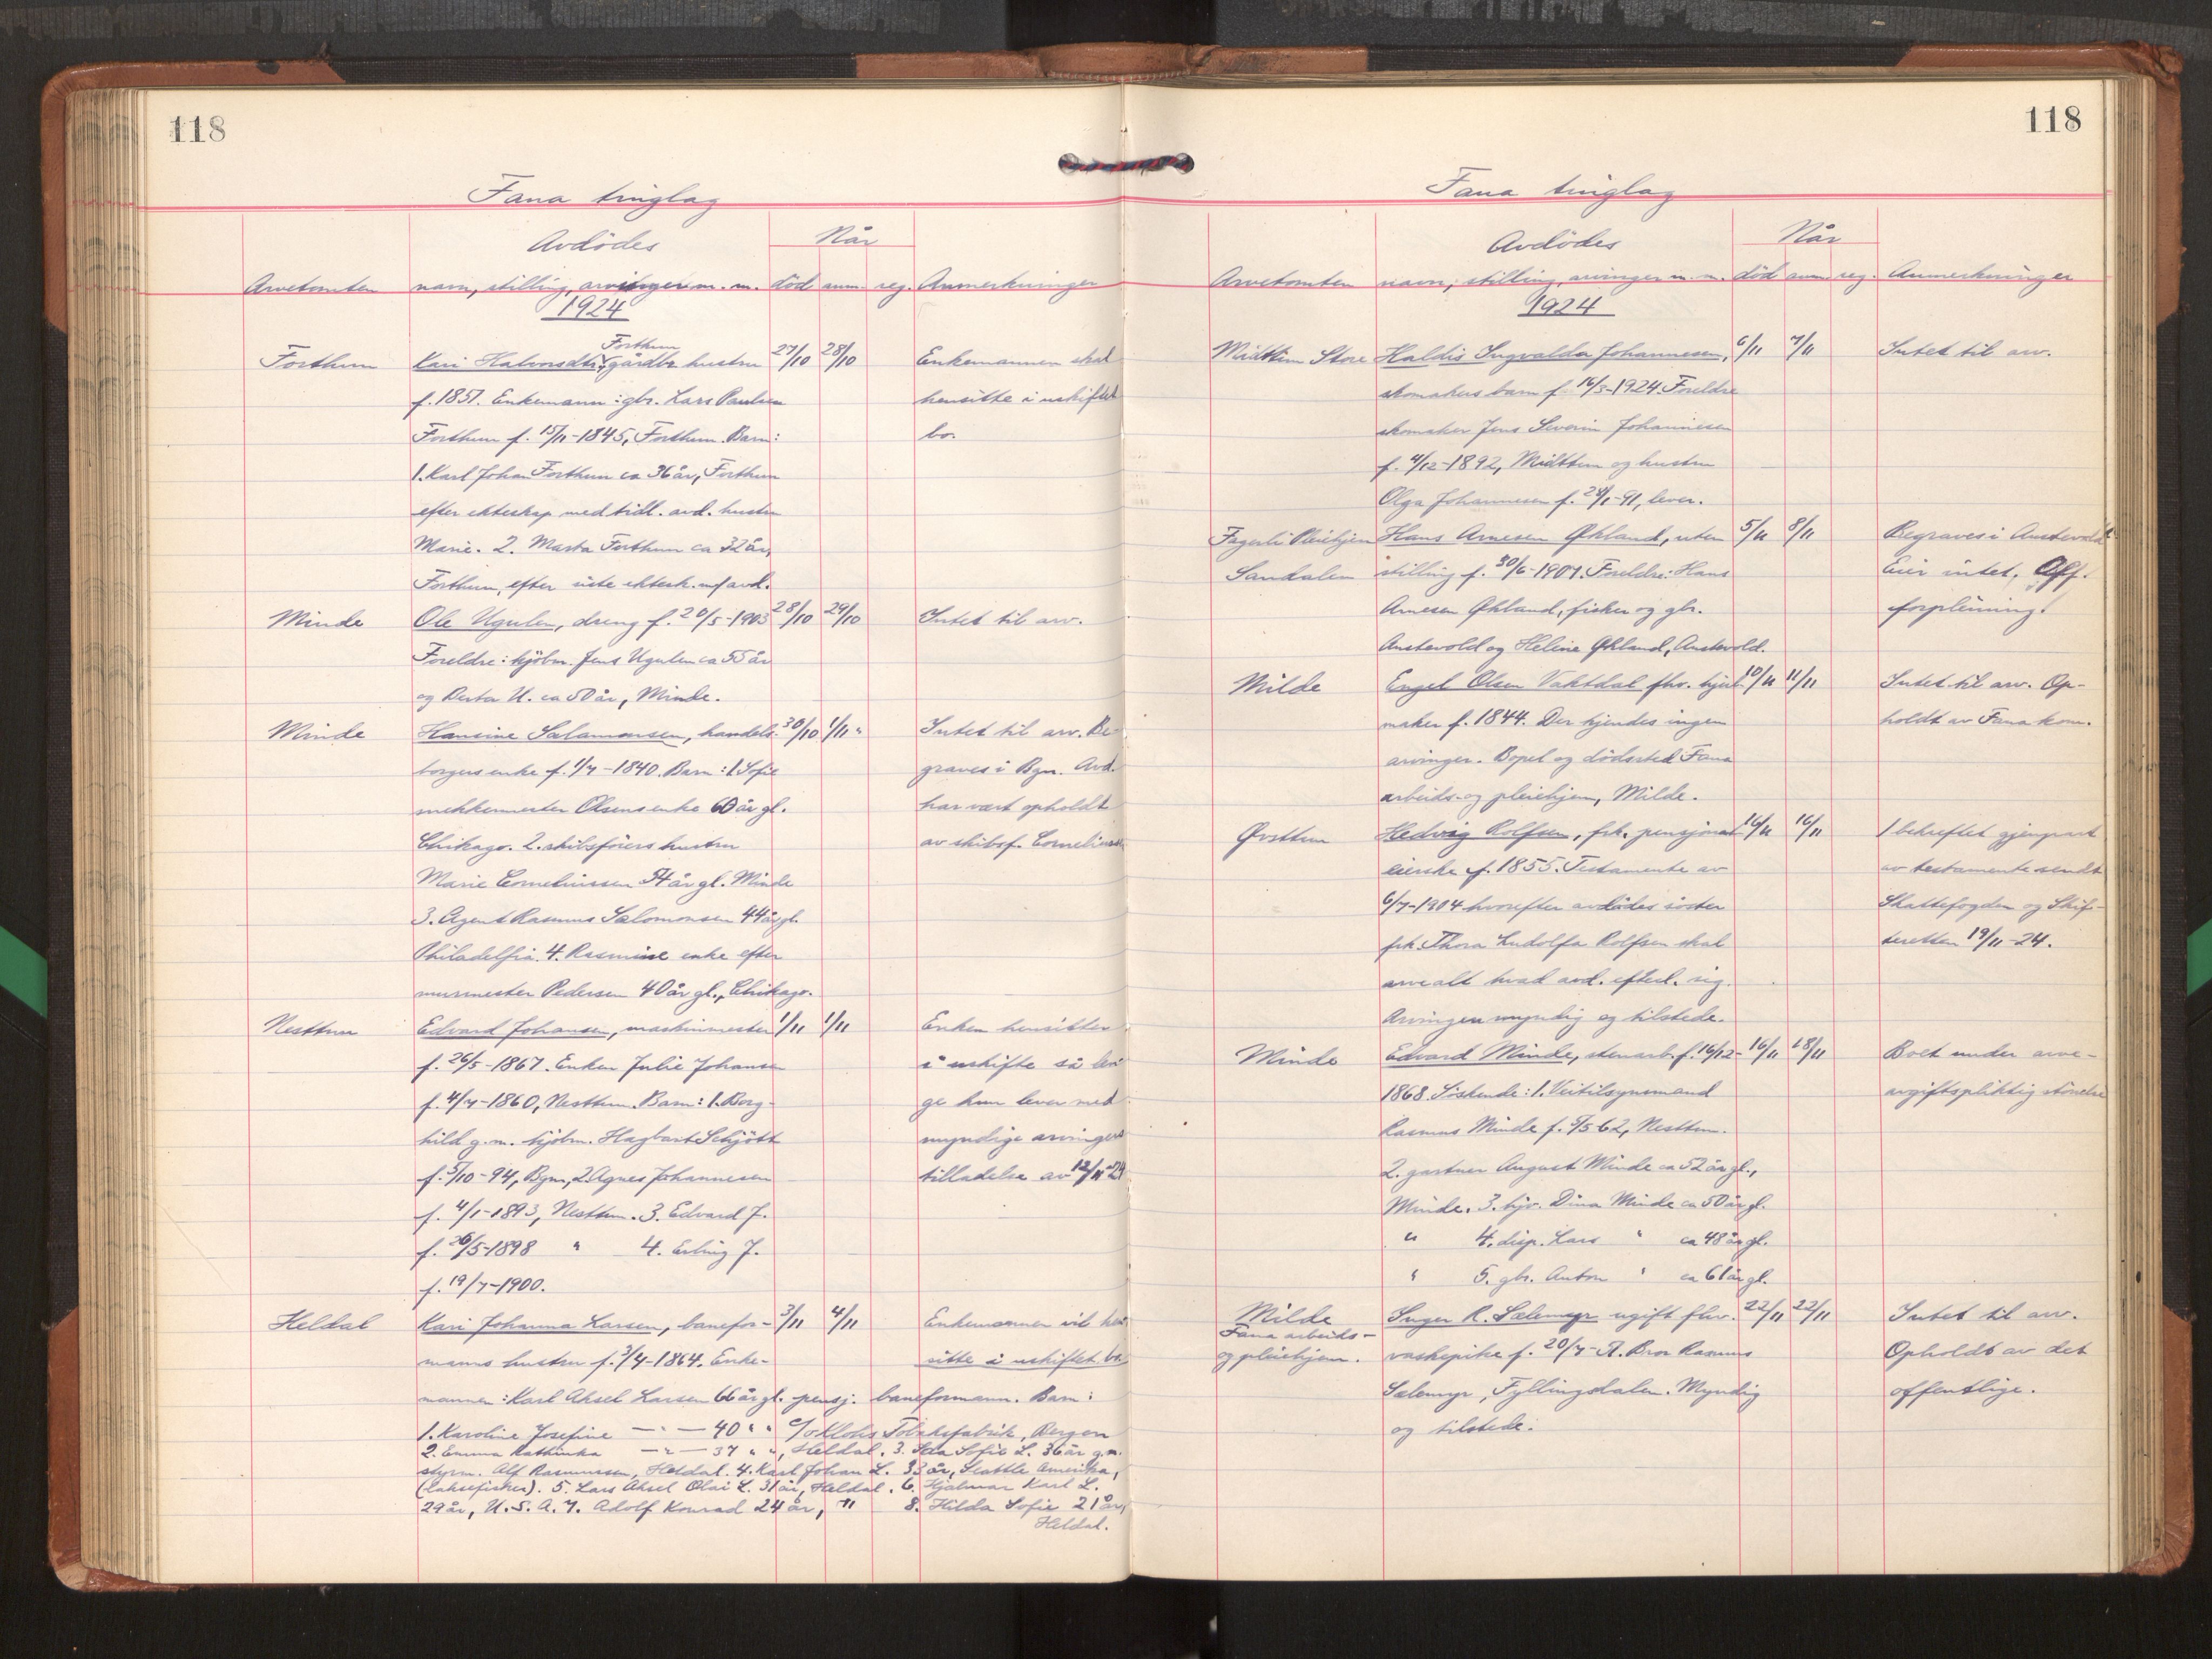 118
Fana tinglag
Avdödes
Når
Arvetomten navn, stilling, arvinger m. m. död anm. reg. Anmerkninger
1924
Forthun
Forthun Kari Halvorsdtr. gårdbr. hustru 27/10 28/10 Enkemannen skal
f. 1851. Enkemann: gbr. Lars Paulsen hensitte i uskiftet
Forthun f. 15/11-1845, Forthun. Barn: bo.
1. Karl Johan Forthun ca 36 år, Forthun
efter ekteskap med tidl. avd. hustru
Marie. 2. Marta Forthun ca 32 år,
Forthun, efter siste ektesk. m/ avd.
Minde Ole Ugulen, dreng f. 20/5-1903 28/10 29/10 Intet til arv.
Foreldre: kjöbm. Jens Ugulen ca 55 år
og Berta U. ca 50 år, Minde.
Minde Hansine Salamonsen, handels- 30/10 1/11 " Intet til arv. Be-
borgers enke f. 1/7-1840. Barn: 1. Sofie graves i Bgn. Avd.
mekkemester Olsens enke 60 år gl. har vært opholdt
Chikago. 2. skibsförers hustru av skibsf. Corneliussen
Marie Corneliussen 54 år gl. Minde
3. Agent Rasmus Salomonsen 44 år gl.
Philadelfia. 4. Rasmine enke efter
murmester Pedersen 40 år gl., Chikago.
Nesttun Edvard Johansen, maskinmester 1/11 1/11 Enken hensitter
f. 26/5-1867. Enken Julie Johansen i uskifte så len-
f. 4/7-1860, Nesttun. Barn: 1. Borg- ge hun lever med
hild g. m. kjöbm. Hagbart Schjött myndige arvingers
f. 5/10-94, Bgn, 2. Agnes Johannesen tilladelse av 12/11-24
f. 4/1-1893, Nesttun. 3. Edvard J.
f. 26/5-1898 " 4. Erling J.
f. 19/7-1900.
Heldal Kari Johanna Larsen, banefor- 3/11 4/11 Enkemannen vil hen-
manns hustru f. 3/4-1864. Enke- sitte i uskiftet bo
mannen: Karl Aksel Larsen 66 år gl. pensj. baneformann. Barn:
1. Karoline Josefine — " — 40 " " c/o Tobaksfabrik, Bergen
2. Emma Kathinka — " — 37 " ", Heldal. 3. Sofie L. 36 år g.m.
styrm. Alf Rasmussen, Heldal. 4. Karl Johan L. 33 år, Seattle Amerika,
(laksefisker). 5. Lars Aksel Olai L. 31 år, Heldal. 6. Hjalmar Karl L.
29 år, U. S. A. 7. Adolf Konrad 24 år, " 8. Hilda Sofie 21 år,
Heldal.
118
Fana tinglag
Avdödes
Når
Arvetomten navn, stilling, arvinger m. m. död anm. reg. Anmerkninger
1924
Midttun Store Haldis Ingvalda Johannesen, 6/11 7/11 Intet til arv.
skomakers barn f. 16/3-1924. Foreldre
skomaker Jens Severin Johannesen
f. 4/12-1892, Midttun og hustru
Olga Johannesen f. 24/1-91, lever.
Fagerli Pleiehjem Hans Arnesen Økland, uten 5/11 8/11 Begraves i Austevold.
Sandalen stilling f. 30/6-1907. Foreldre: Hans Eier intet, Off.
Arnesen Økland, fisker og gbr. forpleining.
Austevold og Heline Økland, Austevold.
Milde Engel Olsen Vaktdal fhv. hjul- 10/11 11/11 Intet til arv. Op-
maker f. 1844. Der kjendes ingen holdt av Fana kom.
arvinger. Bopel og dödssted Fana
arbeids- og pleiehjem, Milde.
Øvsttun Hedvig Rolfsen, frk. pensjonat- 16/11 16/11 1 bekreftet gjenpart
eierske f. 1855. Testamente av av testamente sendt
6/7-1904 hvorefter avdödes söster Skattefogden og Skif-
frk. Thora Ludolfa Rolfsen skal teretten 19/11-24.
arve alt hvad avd. efterl. sig.
Arvingen myndig og tilstede.
Minde Edvard Minde, stenarb. f. 16/12- 16/11 18/11 Boet under arve-
1868. Söskende: 1. Veitilsynsmand avgiftspliktig störrelse
Rasmus Minde f. 5/5 62, Nesttun.
2. gartner August Minde ca 52 år gl.,
Minde. 3. hjv. Dina Minde ca 50 år gl.
" 4. disp. Lars " ca 48 år gl.
" 5. gbr. Anton " ca 61 år gl.
Milde Inger R. Sælemyr ugift fhv. 22/11 22/11 Intet til arv.
Fana arbeids-
og pleiehjem. vaskepike f. 20/7- Bror Rasmus Opholdt av det
Sælemyr, Fyllingsdalen. Myndig offentlige.
og tilstede.